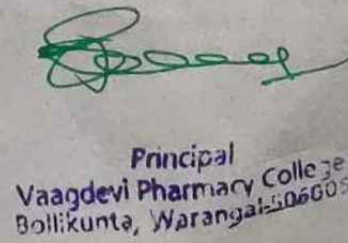 Principal
Vaagdevi Pharmacy College
Bollikunta, Warangal-506005